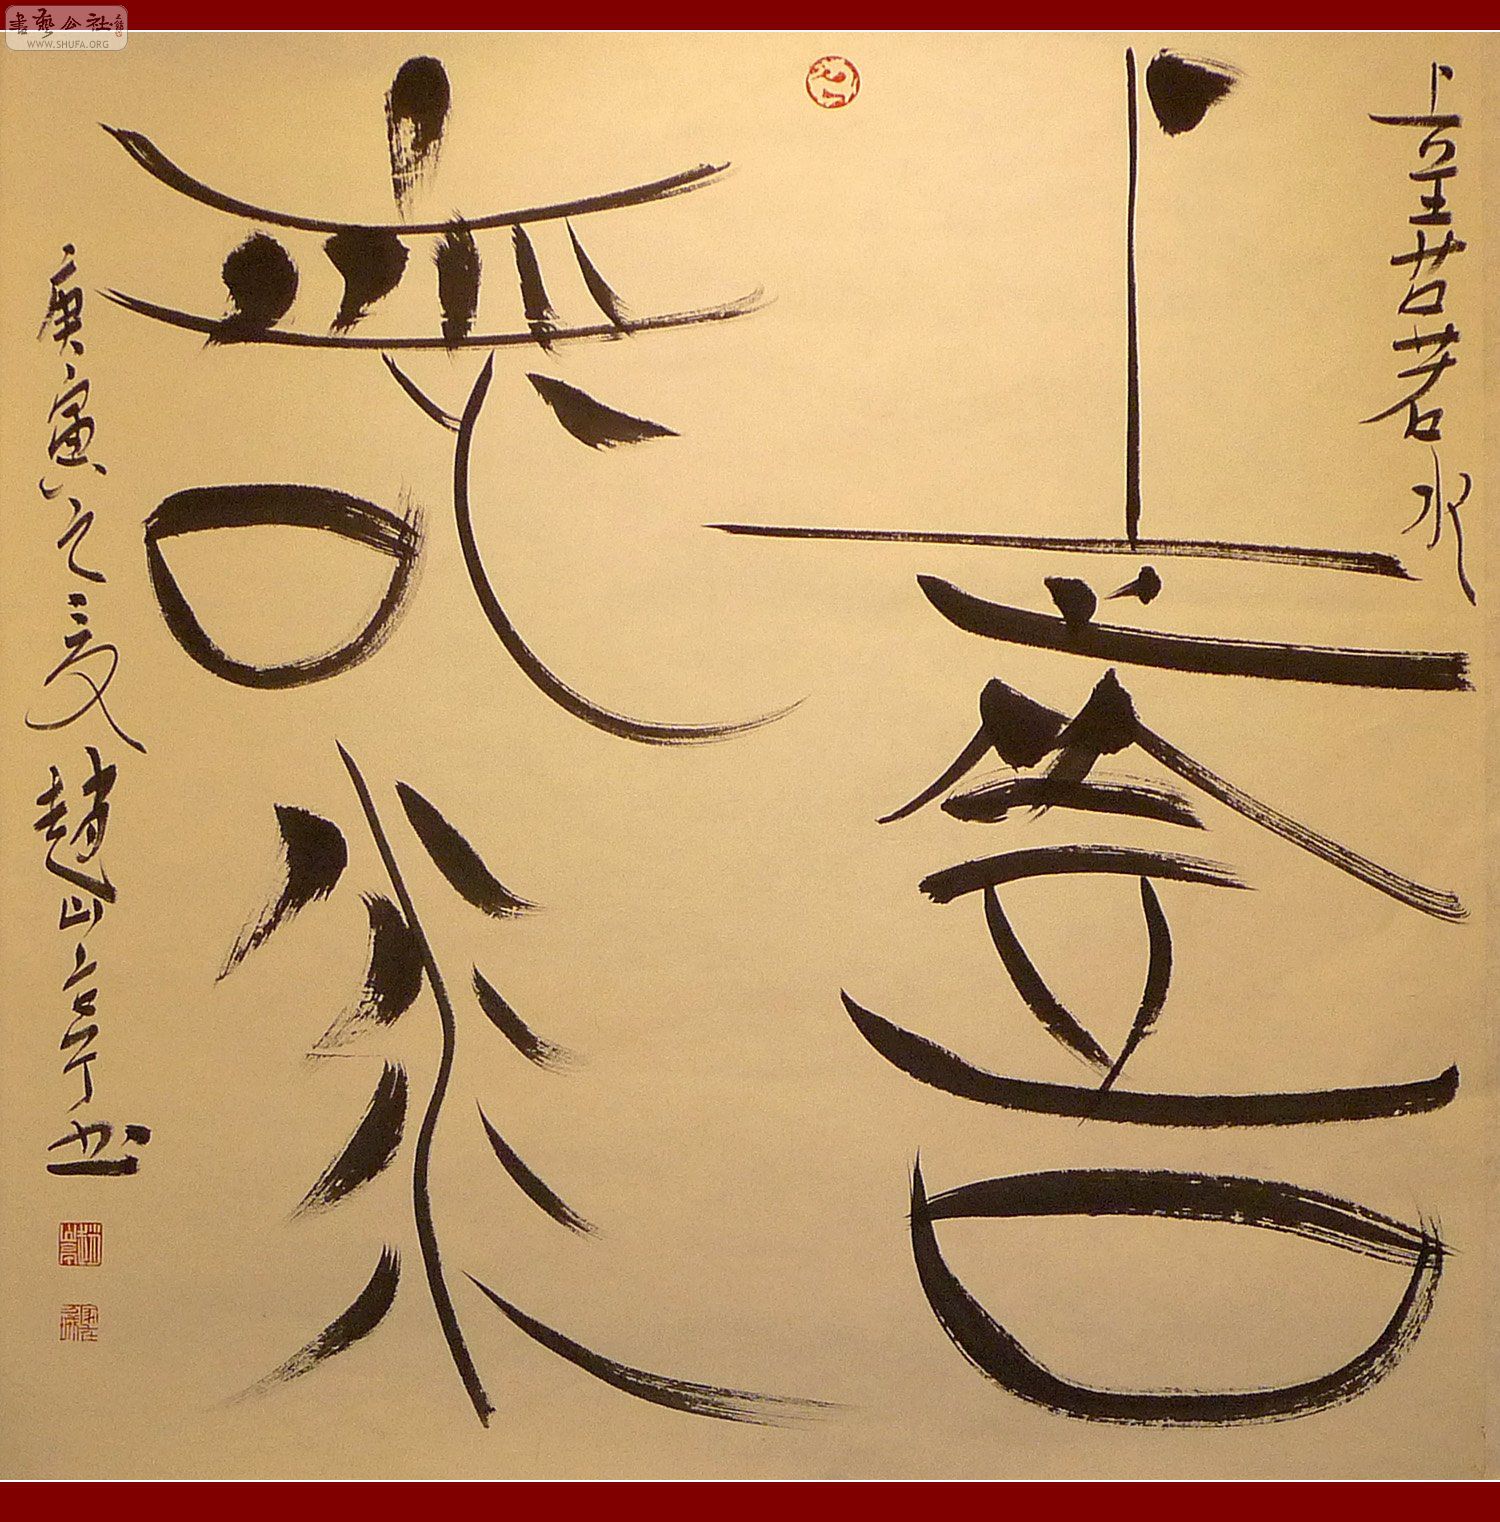 書藝公社
WWW.SHUFA.ORG
上善若水
上善
若水
庚寅之夏趙山亭书